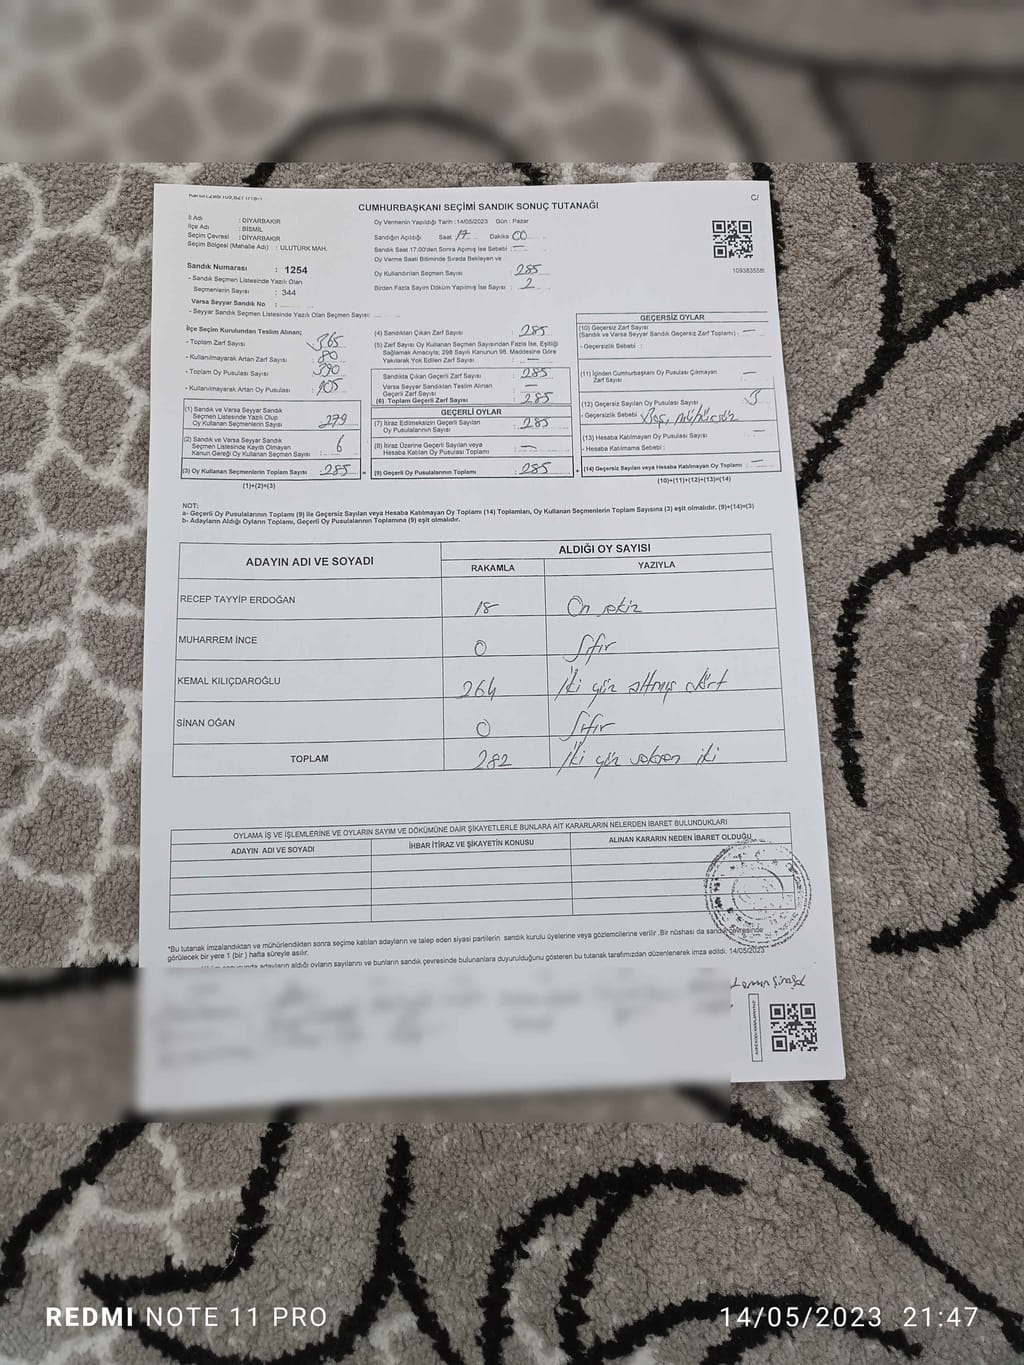 CUMHURBAŞKANI SEÇİMİ SANDIK SONUÇ TUTANAĞI
İl Adı : DİYARBAKIR
İlçe Adı : BİSMİL
Seçim Çevresi : DİYARBAKIR
Seçim Bölgesi (Mahalle Adı) : ULUTÜRK MAH.
Sandık Numarası : 1254
- Sandık Seçmen Listesinde Yazılı Olan
Seçmenlerin Sayısı : 344
Varsa Seyyar Sandık No :
- Seyyar Sandık Seçmen Listesinde Yazılı Olan Seçmen Sayısı:
Oy Vermenin Yapıldığı Tarih : 14/05/2023 Gün : Pazar
Sandığın Açıldığı Saat 17 Dakika 00
Sandık Saat 17:00'den Sonra Açılmış İse Sebebi : —
Oy Verme Saati Bitiminde Sırada Bekleyen ve
Oy Kullandırılan Seçmen Sayısı : 285
Birden Fazla Sayım Döküm Yapılmış İse Sayısı : 2
1093835581
İlçe Seçim Kurulundan Teslim Alınan;
- Toplam Zarf Sayısı : 365
- Kullanılmayarak Artan Zarf Sayısı : 80
- Toplam Oy Pusulası Sayısı : 390
- Kullanılmayarak Artan Oy Pusulası : 105
(1) Sandık ve Varsa Seyyar Sandık
Seçmen Listesinde Yazılı Olup
Oy Kullanan Seçmenlerin Sayısı : 279
(2) Sandık ve Varsa Seyyar Sandık
Seçmen Listesinde Kayıtlı Olmayan
Kanun Gereği Oy Kullanan Seçmen Sayısı : 6
(3) Oy Kullanan Seçmenlerin Toplam Sayısı : 285
(1)+(2)=(3)
(4) Sandıktan Çıkan Zarf Sayısı : 285
(5) Zarf Sayısı Oy Kullanan Seçmen Sayısından Fazla İse, Eşitliği
Sağlamak Amacıyla; 298 Sayılı Kanunun 98. Maddesine Göre
Yakılarak Yok Edilen Zarf Sayısı : —
Sandıkta Çıkan Geçerli Zarf Sayısı : 285
Varsa Seyyar Sandıktan Teslim Alınan
Geçerli Zarf Sayısı : —
(6) Toplam Geçerli Zarf Sayısı : 285
GEÇERLİ OYLAR
(7) İtiraz Edilmeksizin Geçerli Sayılan
Oy Pusulalarının Sayısı : 285
(8) İtiraz Üzerine Geçerli Sayılan veya
Hesaba Katılan Oy Pusulası Toplamı : —
(9) Geçerli Oy Pusulalarının Toplamı : 285
GEÇERSİZ OYLAR
(10) Geçersiz Zarf Sayısı
(Sandık ve Varsa Seyyar Sandık Geçersiz Zarf Toplamı) : —
- Geçersizlik Sebebi :
(11) İçinden Cumhurbaşkanı Oy Pusulası Çıkmayan
Zarf Sayısı : —
(12) Geçersiz Sayılan Oy Pusulası Sayısı : 3
- Geçersizlik Sebebi : Boş, mühürsüz
(13) Hesaba Katılmayan Oy Pusulası Sayısı : —
- Hesaba Katılmama Sebebi :
(14) Geçersiz Sayılan veya Hesaba Katılmayan Oy Toplamı : —
(10)+(11)+(12)+(13)=(14)
NOT:
a- Geçerli Oy Pusulalarının Toplamı (9) ile Geçersiz Sayılan veya Hesaba Katılmayan Oy Toplamı (14) Toplamları, Oy Kullanan Seçmenlerin Toplam Sayısına (3) eşit olmalıdır. (9)+(14)=(3)
b- Adayların Aldığı Oyların Toplamı, Geçerli Oy Pusulalarının Toplamına (9) eşit olmalıdır.
ADAYIN ADI VE SOYADI ALDIĞI OY SAYISI
RAKAMLA YAZIYLA
RECEP TAYYİP ERDOĞAN 18 On sekiz
MUHARREM İNCE 0 Sıfır
KEMAL KILIÇDAROĞLU 264 İki yüz altmış dört
SİNAN OĞAN 0 Sıfır
TOPLAM 282 İki yüz seksen iki
OYLAMA İŞ VE İŞLEMLERİNE VE OYLARIN SAYIM VE DÖKÜMÜNE DAİR ŞİKAYETLERLE BUNLARA AİT KARARLARIN NELERDEN İBARET BULUNDUKLARI
ADAYIN ADI VE SOYADI İHBAR İTİRAZ VE ŞİKAYETİN KONUSU ALINAN KARARIN NEDEN İBARET OLDUĞU
"Bu tutanak imzalandıktan ve mühürlendikten sonra seçime katılan adayların ve talep eden siyasi partilerin sandık kurulu üyelerine veya gözlemcilerine verilir .Bir nüshası da sandık çevresinde
görülecek bir yere 1 (bir ) hafta süreyle asılır.
adayların aldığı oyların sayılarını ve bunların sandık çevresinde bulunanlara duyurulduğunu gösteren bu tutanak tarafımızdan düzenlenerek imza edildi. 14/05/2023
REDMI NOTE 11 PRO
14/05/2023 21:47